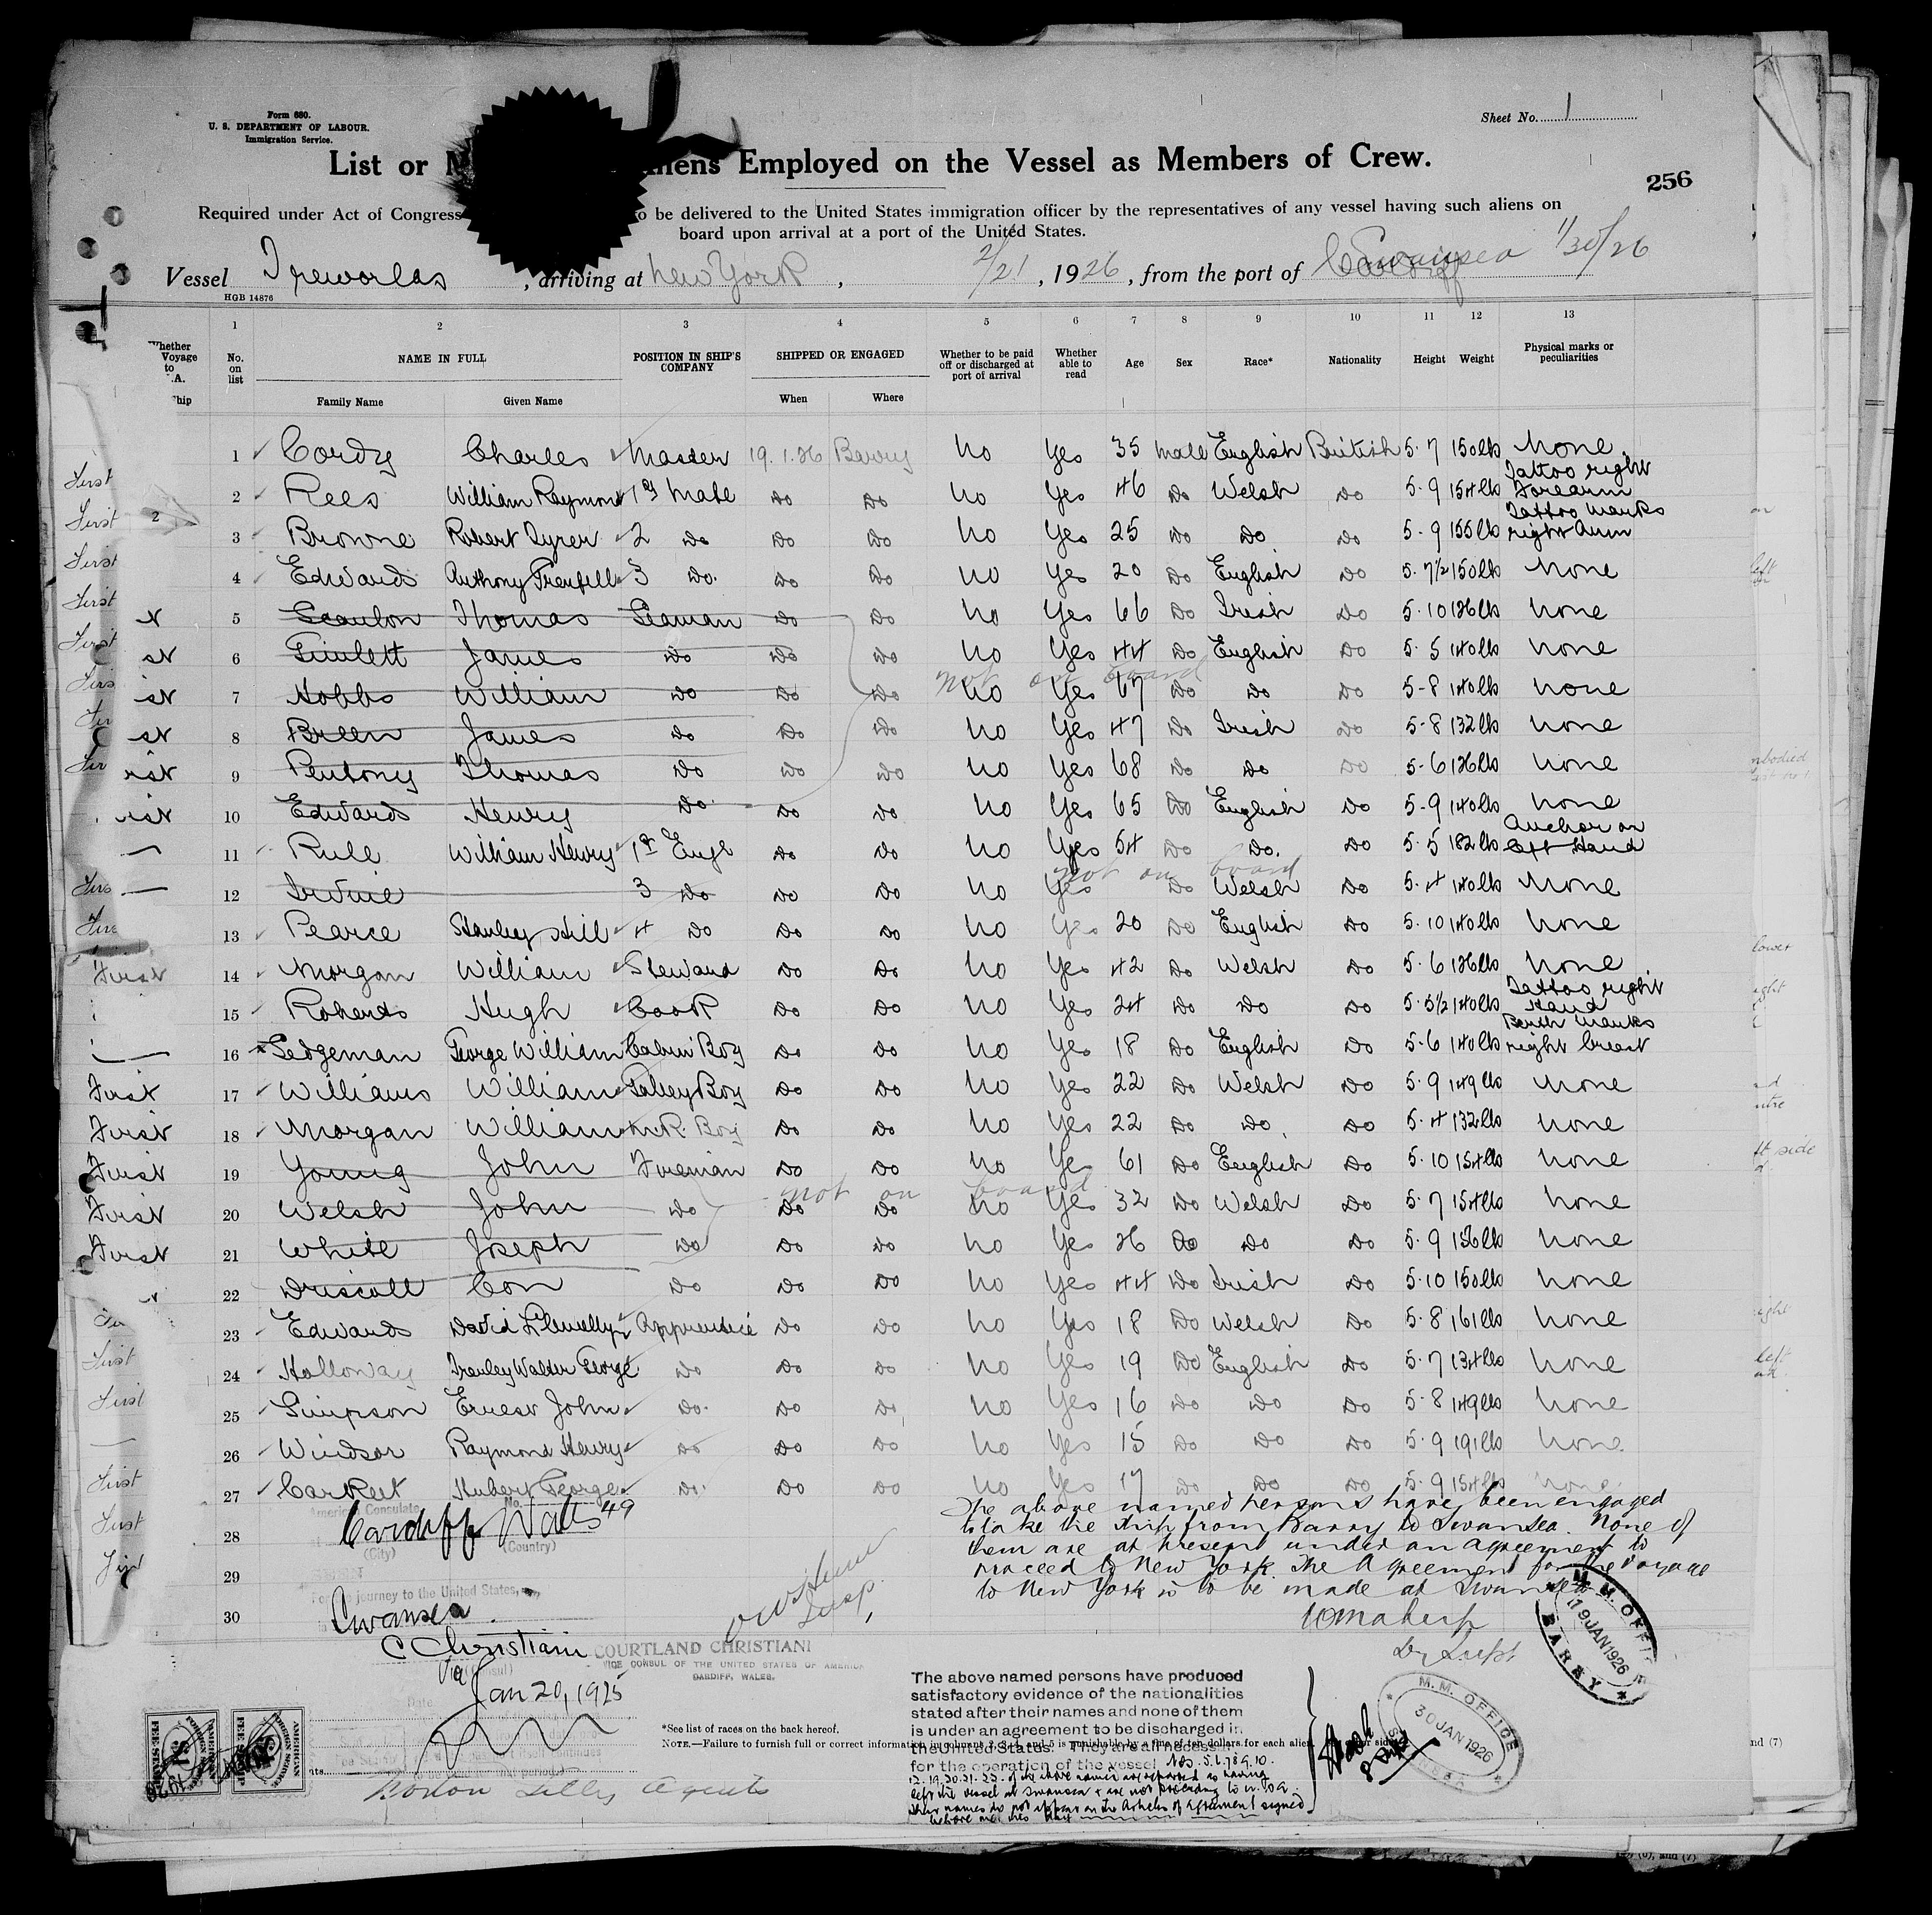 Form 680.
U. S. DEPARTMENT OF LABOUR.
Immigration Service.
Sheet No. 1
List or M iens Employed on the Vessel as Members of Crew.
256
Required under Act of Congress o be delivered to the United States immigration officer by the representatives of any vessel having such aliens on
board upon arrival at a port of the United States.
Vessel Treworlas, arriving at New York, 2/21, 1926, from the port of Cardiff Swansea 1/30/26
HGB 14876
1 2 3 4 5 6 7 8 9 10 11 12 13
Whether Voyage to .A. hip
No. on list NAME IN FULL POSITION IN SHIP'S COMPANY SHIPPED OR ENGAGED Whether to be paid off or discharged at port of arrival Whether able to read Age Sex Race* Nationality Height Weight Physical marks or peculiarities
Family Name Given Name When Where
1 Cordy Charles Master 19.1.26 Barry No Yes 35 Male English British 5.7 150lbs None
First 2 Rees William Raymond 1st Mate Do Do No Yes 46 Do Welsh Do 5.9 154lbs Tattoo right Forearm
First 3 Browne Robert Tyrer 2 Do Do Do No Yes 25 Do Do Do 5.9 155lbs Tattoo Marks right Arm
First 4 Edwards Anthony Trenfell 3 Do. Do Do No Yes 20 Do English Do 5.7½ 150lbs None
First 5 Scanlon Thomas Seaman Do Do No Yes 66 Do Irish Do 5.10 126lbs None
First 6 Gimlett James Do Do Do No Yes 44 Do English Do 5.5 140lbs None
not on board
7 Hobbs William Do Do Do No Yes 67 Do Do Do 5-8 140lbs None
8 Breen James Do Do Do No Yes 47 Do Irish Do 5-8 132lbs None
9 Pentony Thomas Do Do Do No Yes 68 Do Do Do 5-6 126lbs None
10 Edwards Henry Do Do Do No Yes 65 Do English Do 5-9 140lbs None
11 Rule William Henry 1st Engr Do Do No Yes 54 Do Do. Do 5.5 182lbs Anchor on left Hand
not on board
12 Irvine 3 Do Do Do No Yes Do Welsh Do 5.4 140lbs None
13 Pearce Stanley Hill 4 Do Do Do No Yes 20 Do English Do 5.10 140lbs None
First 14 Morgan William Steward Do Do No Yes 42 Do Welsh Do 5.6 126lbs None
15 Roberts Hugh Cook Do Do No Yes 24 Do Do Do 5.5½ 140lbs Tattoo right Hand
16 Sedgeman George William Cabin Boy Do Do No Yes 18 Do English Do 5-6 140lbs Birth Marks right breast
First 17 Williams William Galley Boy Do Do No Yes 22 Do Welsh Do 5.9 149lbs None
First 18 Morgan William M.R. Boy Do Do No Yes 22 Do Do Do 5.4 132lbs None
First 19 Young John Fireman Do Do No Yes 61 Do English Do 5.10 154lbs None
not on board
First 20 Welsh John Do Do Do No Yes 32 Do Welsh Do 5.7 154lbs None
First 21 White Joseph Do Do Do No Yes 26 Do Do Do 5.9 156lbs None
22 Driscoll Con Do Do Do No Yes 44 Do Irish Do 5.10 150lbs None
23 Edwards David Llewellyn Apprentice Do Do No Yes 18 Do Welsh Do 5.8 161lbs None
First 24 Holloway Walter George Do Do Do No Yes 19 Do English Do 5.7 134lbs None
First 25 Simpson Ernest John Do. Do Do No Yes 16 Do Do Do 5.8 149lbs None
26 Windsor Raymond Henry Do Do Do No Yes 15 Do Do Do 5.9 191lbs None
First 27 Carkeet Hubert George Do Do Do No Yes 17 Do Do Do 5.9 154lbs None
American Consulate No. 49
28 Cardiff Wales
(City) (Country)
29
SEEN
For the journey to the United States,
30 Swansea
The above named persons have been engaged
to take the ship from Barry to Swansea. None of
them are at present under an agreement to
proceed to New York. The Agreement for the voyage
to New York is to be made at Swansea
Dy Supt
M. M. OFFICE
19 JAN 1926
BARRY
C Christiani
COURTLAND CHRISTIANI
VICE CONSUL OF THE UNITED STATES OF AMERICA
CARDIFF, WALES.
Jan 20, 1925
The above named persons have produced
satisfactory evidence of the nationalities
stated after their names and none of them
is under an agreement to be discharged in
the United States. They are all necess
for the operation of the vessel. Nos. 5.6.7.8.9.10.
12.19.20.21.22. of the above names are reported as having
left the vessel at Swansea & are not proceeding to U.S.A.
their names do not appear on the Articles of Agreement signed
before me this day
M. M. OFFICE
30 JAN 1926
SWANSEA
*See list of races on the back hereof.
NOTE.—Failure to furnish full or correct information in columns 2, 3, 4, and 5 is punishable by a fine of ten dollars for each alien.
AMERICAN FOREIGN SERVICE FEE STAMP
AMERICAN FOREIGN SERVICE FEE STAMP
Norton Lilly Agents